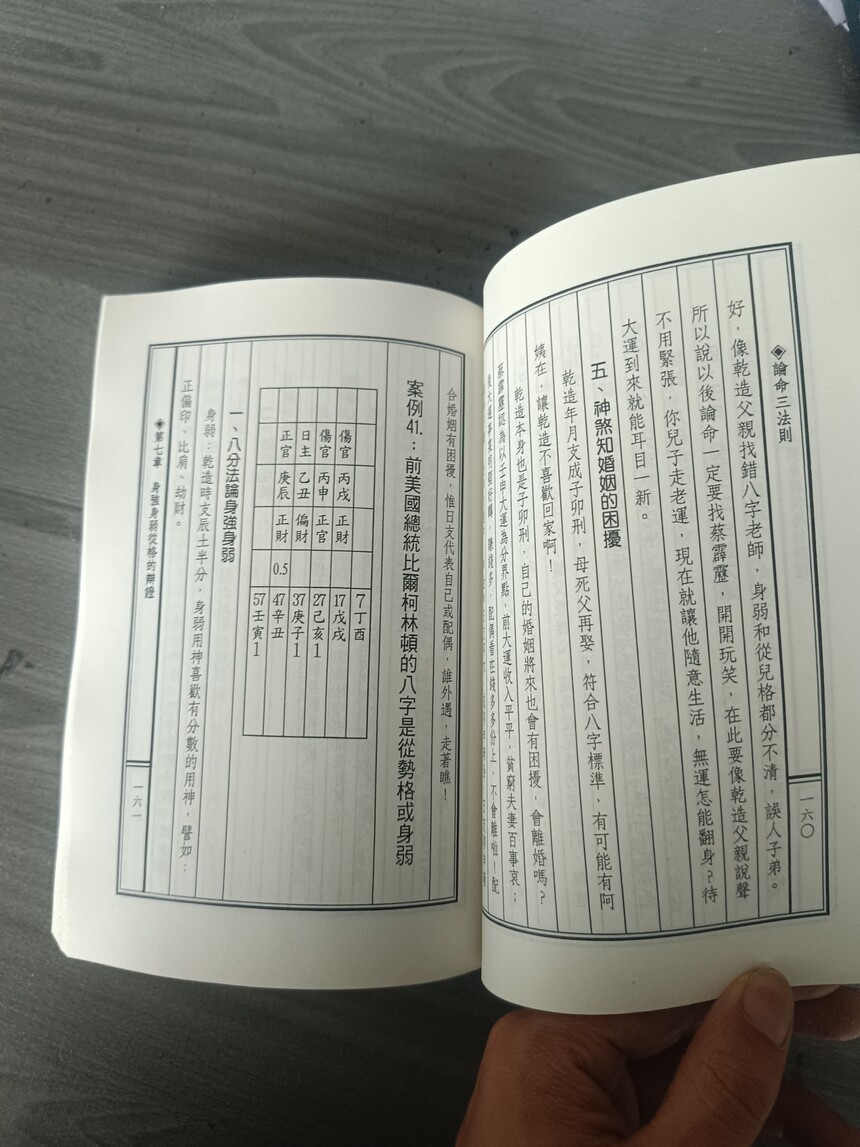 ◈論命三法則
一六〇
好，像乾造父親找錯八字老師，身弱和從兒格都分不清，誤人子弟。
所以說以後論命一定要找蔡霹靂，開開玩笑，在此要像乾造父親說聲
不用緊張，你兒子走老運，現在就讓他隨意生活，無運怎能翻身？待
大運到來就能耳目一新。
五、神煞知婚姻的困擾
乾造年月支成子卯刑，母死父再娶，符合八字標準，有可能有阿
姨在，讓乾造不喜歡回家啊！
乾造本身也是子卯刑，自己的婚姻將來也會有困擾，會離婚嗎？
蔡霹靂認為以壬申大運為分界點，前大運收入平平，貧窮夫妻百事哀；
合婚姻有困擾，惟日支代表自己或配偶，誰外遇，走著瞧！
案例41.：前美國總統比爾柯林頓的八字是從勢格或身弱
傷官 丙戌 正財
傷官 丙申 正官
日主 乙丑 偏財
正官 庚辰 正財 0.5
7丁酉
17戊戌
27己亥1
37庚子1
47辛丑
57壬寅1
一、八分法論身強身弱
身弱：乾造時支辰土半分，身弱用神喜歡有分數的用神，譬如：
正偏印、比肩、劫財。
◈第七章　身強身弱從格的辯證
一六一